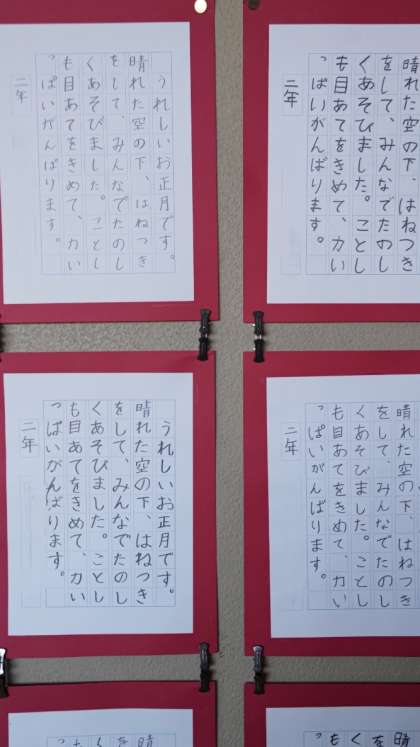 うれしいお正月です。
晴れた空の下、はねつき
をして、みんなでたのし
くあそびました。ことし
も目あてをきめて、力い
っぱいがんばります。
二年
晴れた空の下、はねつき
をして、みんなでたのし
くあそびました。ことし
も目あてをきめて、力い
っぱいがんばります。
二年
うれしいお正月です。
晴れた空の下、はねつき
をして、みんなでたのし
くあそびました。ことし
も目あてをきめて、力い
っぱいがんばります。
二年
晴れた空の下、はねつき
をして、みんなでたのし
くあそびました。ことし
も目あてをきめて、力い
っぱいがんばります。
二年
晴
を
く
も
っぱ
晴
を
く
も